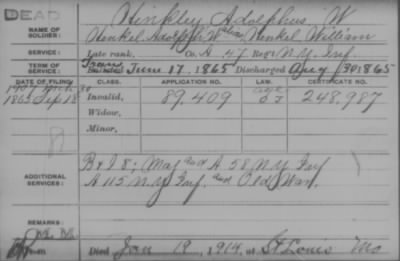 DEAD
NAME OF SOLDIER:
Hinkley Adolphus W
Henkel, Adolph W alias Henkel William
SERVICE:
Late rank, Co. A 47 Regt N.Y. Inf
TERM OF SERVICE:
Enlisted June 17, 1865 Discharged Aug 30 1865
DATE OF FILING. APPLICATION NO. LAW. CERTIFICATE NO.
1907
1865 Sep 18 Invalid, 89.409 age 248,987
Widow,
Minor,
ADDITIONAL SERVICES:
B & I 8; and A 58 N.Y. Inf
A 115 N.Y. Inf. and Old War.
REMARKS:
Died Jan 19, 1914, at St Louis Mo